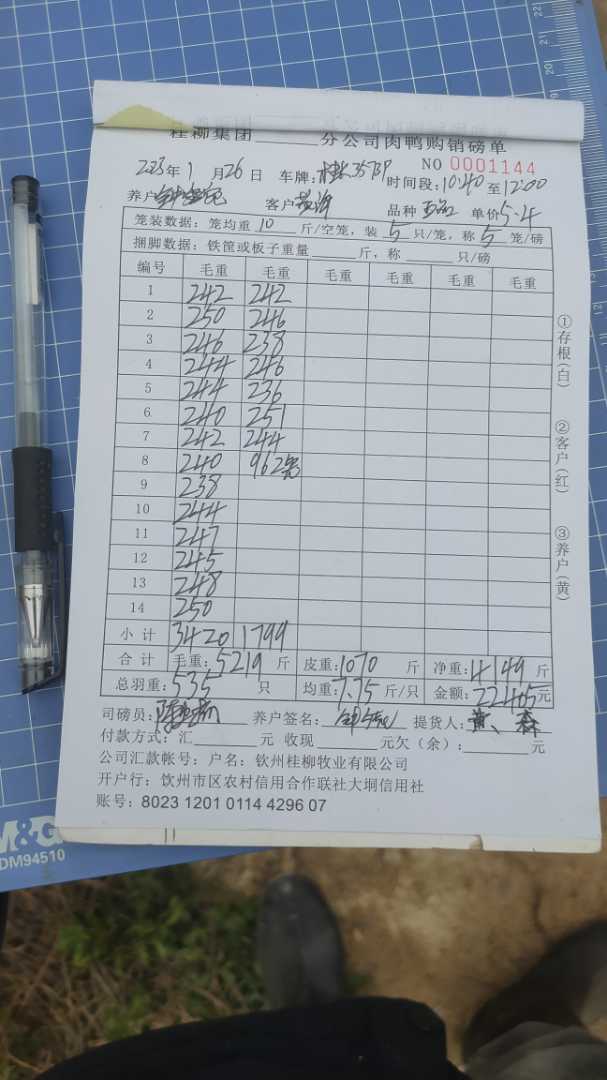 桂柳集团 分公司肉鸭购销磅单
NO 0001144
2023年1月26日 车牌: 时间段:10:40至12:00
养户 客户 品种 单价5.4
笼装数据:笼均重10斤/空笼,装5只/笼,称5笼/磅
捆脚数据:铁筐或板子重量 斤,称 只/磅
编号 毛重 毛重 毛重 毛重 毛重 毛重
1 242 242
2 250 246
3 246 238
4 244 246
5 244 236
6 240 251
7 242 244
8 240 96
9 238
10 244
11 247
12 245
13 248
14 250
小计 3420 1799
合计 毛重:5219斤 皮重:1070斤 净重:4149斤
总羽重:535只 均重:7.75斤/只 金额:22405元
司磅员: 养户签名: 提货人:
付款方式:汇 元 收现 元欠(余): 元
公司汇款帐号:户名:钦州桂柳牧业有限公司
开户行:饮州市区农村信用合作联社大垌信用社
账号:8023 1201 0114 4296 07
①存根(白)
②客户(红)
③养户(黄)
M&G
DM94510
22
21
20
19